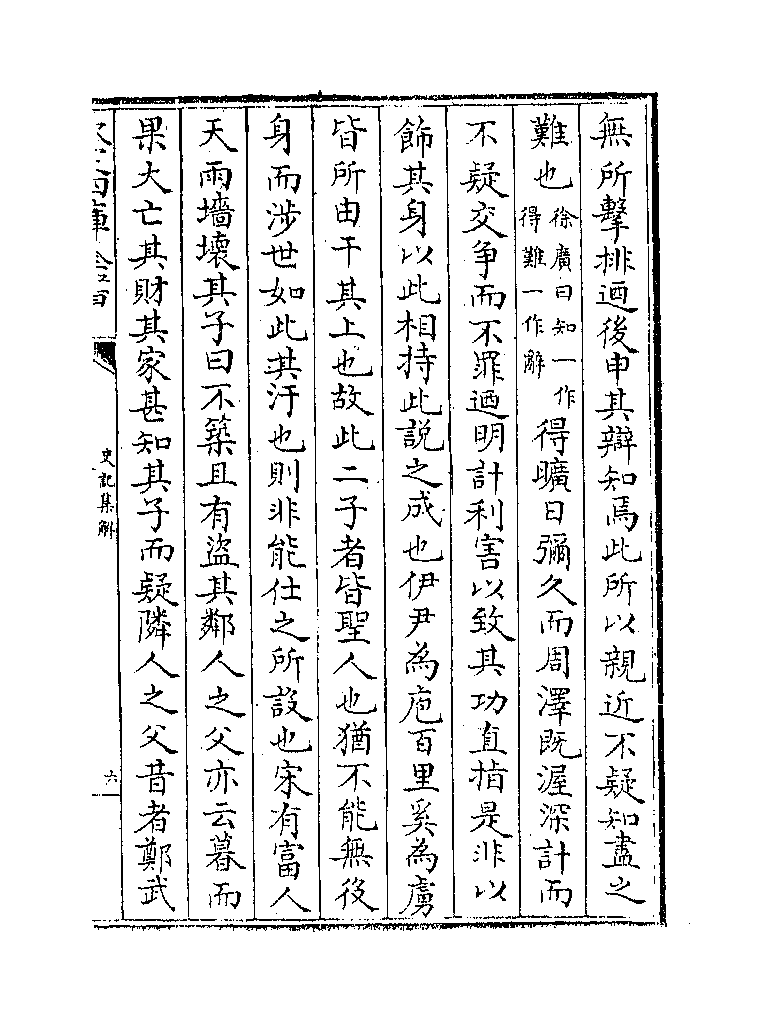 無所擊排迺後申其辯知焉此所以親近不疑知盡之
難也徐廣曰知一作得難一作辭得曠日彌久而周澤既渥深計而
不疑交争而不罪迺明計利害以致其功直指是非以
飾其身以此相持此説之成也伊尹為庖百里奚為虜
皆所由干其上也故此二子者皆聖人也猶不能無役
身而涉世如此其汙也則非能仕之所設也宋有富人
天雨墻壊其子曰不築且有盜其鄰人之父亦云暮而
果大亡其財其家甚知其子而疑隣人之父昔者鄭武
史記集解
六